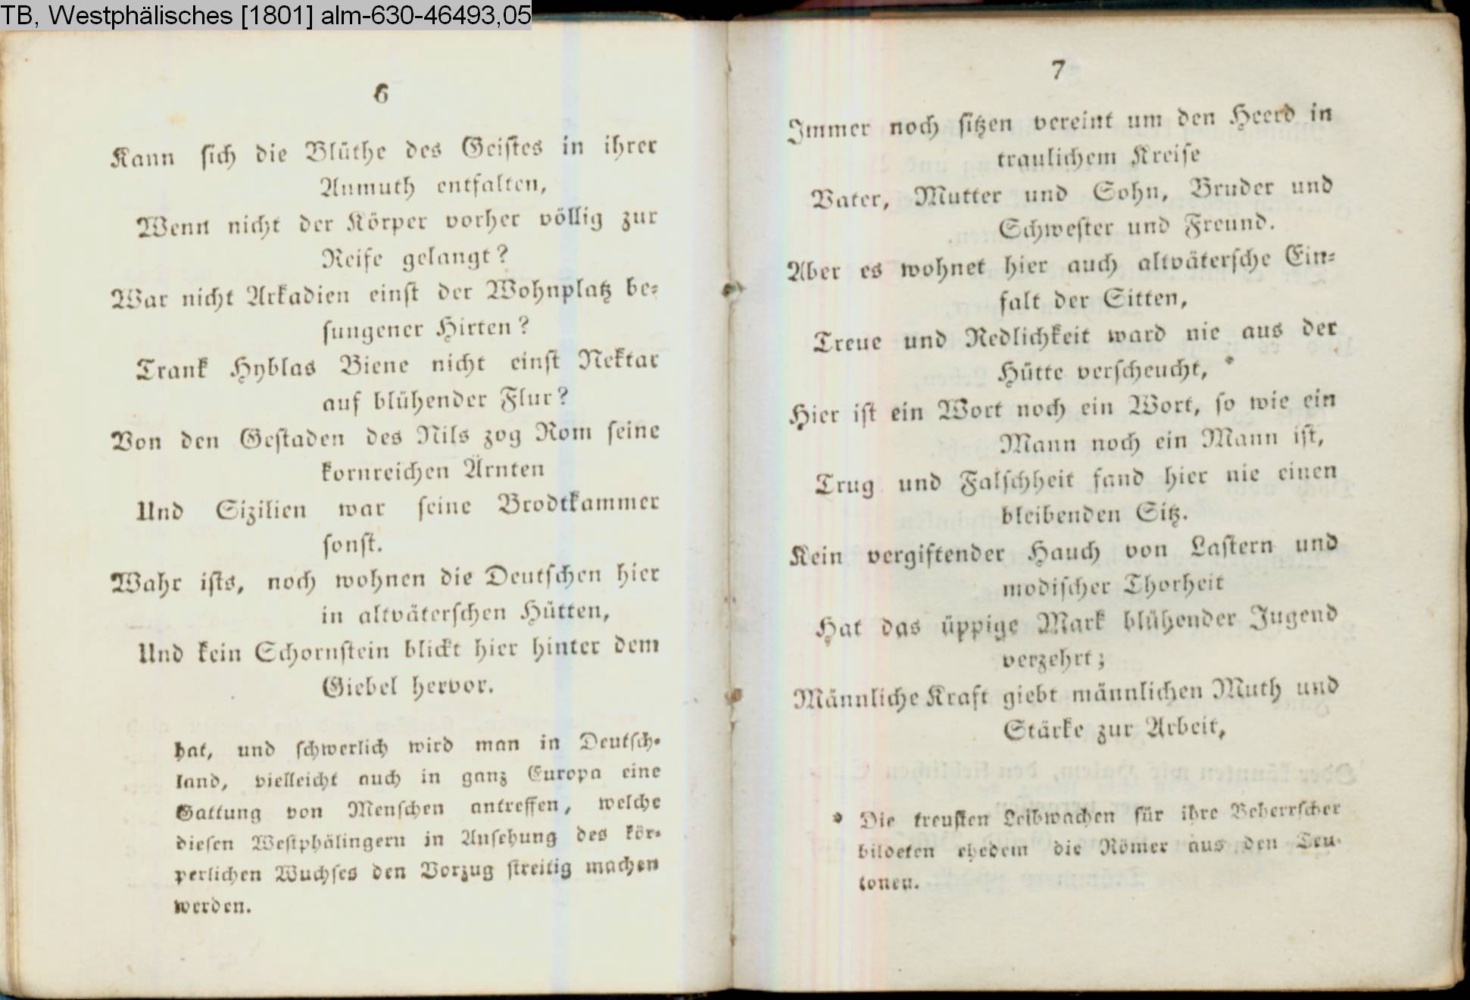 TB, Westphälisches [1801] alm-630-46493,05
6
Kann sich die Blüthe des Geistes in ihrer
Anmuth entfalten,
Wenn nicht der Körper vorher völlig zur
Reife gelangt?
War nicht Arkadien einst der Wohnplatz be-
sungener Hirten?
Trank Hyblas Biene nicht einst Nektar
auf blühender Flur?
Von den Gestaden des Nils zog Rom seine
kornreichen Ärnten
Und Sizilien war seine Brodtkammer
sonst.
Wahr ists, noch wohnen die Deutschen hier
in altväterschen Hütten,
Und kein Schornstein blickt hier hinter dem
Giebel hervor.
hat, und schwerlich wird man in Deutsch-
land, vielleicht auch in ganz Europa eine
Gattung von Menschen antreffen, welche
diesen Westphälingern in Ansehung des kör-
perlichen Wuchses den Vorzug streitig machen
werden.
7
Immer noch sitzen vereint um den Heerd in
traulichem Kreise
Vater, Mutter und Sohn, Bruder und
Schwester und Freund.
Aber es wohnet hier auch altvätersche Ein-
falt der Sitten,
Treue und Redlichkeit ward nie aus der
Hütte verscheucht, *
Hier ist ein Wort noch ein Wort, so wie ein
Mann noch ein Mann ist,
Trug und Falschheit fand hier nie einen
bleibenden Sitz.
Kein vergiftender Hauch von Lastern und
modischer Thorheit
Hat das üppige Mark blühender Jugend
verzehrt;
Männliche Kraft giebt männlichen Muth und
Stärke zur Arbeit,
* Die treusten Leibwachen für ihre Beherrscher
bildeten ehedem die Römer aus den Teu-
tonen.